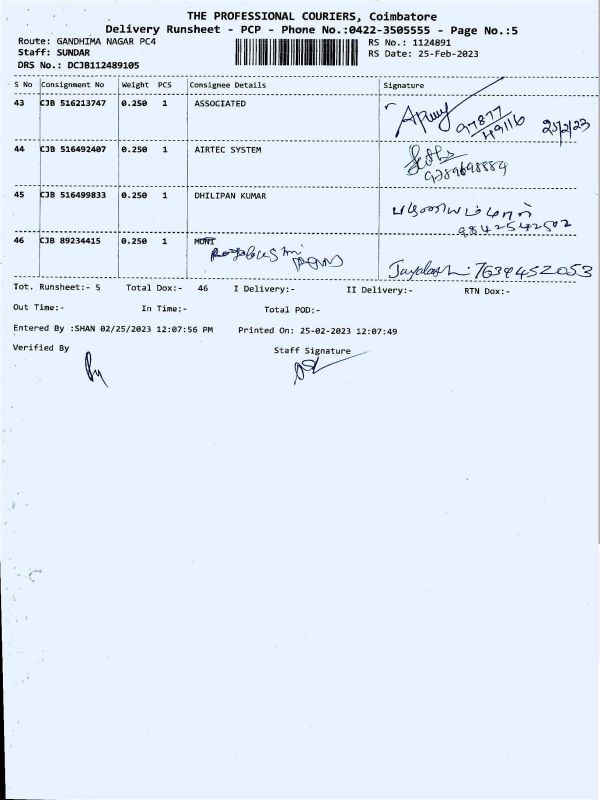 THE PROFESSIONAL COURIERS, Coimbatore
Delivery Runsheet - PCP - Phone No.:0422-3505555 - Page No.:5
Route: GANDHIMA NAGAR PC4 RS No.: 1124891
Staff: SUNDAR RS Date: 25-Feb-2023
DRS No.: DCJB112489105
S No Consignment No Weight PCS Consignee Details Signature
43 CJB 516213747 0.250 1 ASSOCIATED
97877
49116 25/2/23
44 CJB 516492407 0.250 1 AIRTEC SYSTEM
9789698884
45 CJB 516499833 0.250 1 DHILIPAN KUMAR
9842542502
46 CJB 89234415 0.250 1
7639452053
Tot. Runsheet:- 5 Total Dox:- 46 I Delivery:- II Delivery:- RTN Dox:-
Out Time:- In Time:- Total POD:-
Entered By :SHAN 02/25/2023 12:07:56 PM Printed On: 25-02-2023 12:07:49
Verified By Staff Signature